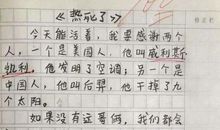 《热死了》
今天能活着，我要感谢两个
人，一个是美国人，他叫威利斯
凯利。他发明了空调，另一个是
中国人，他叫后羿，他干掉了九
个太阳。
如果没有这哥俩，我们都会